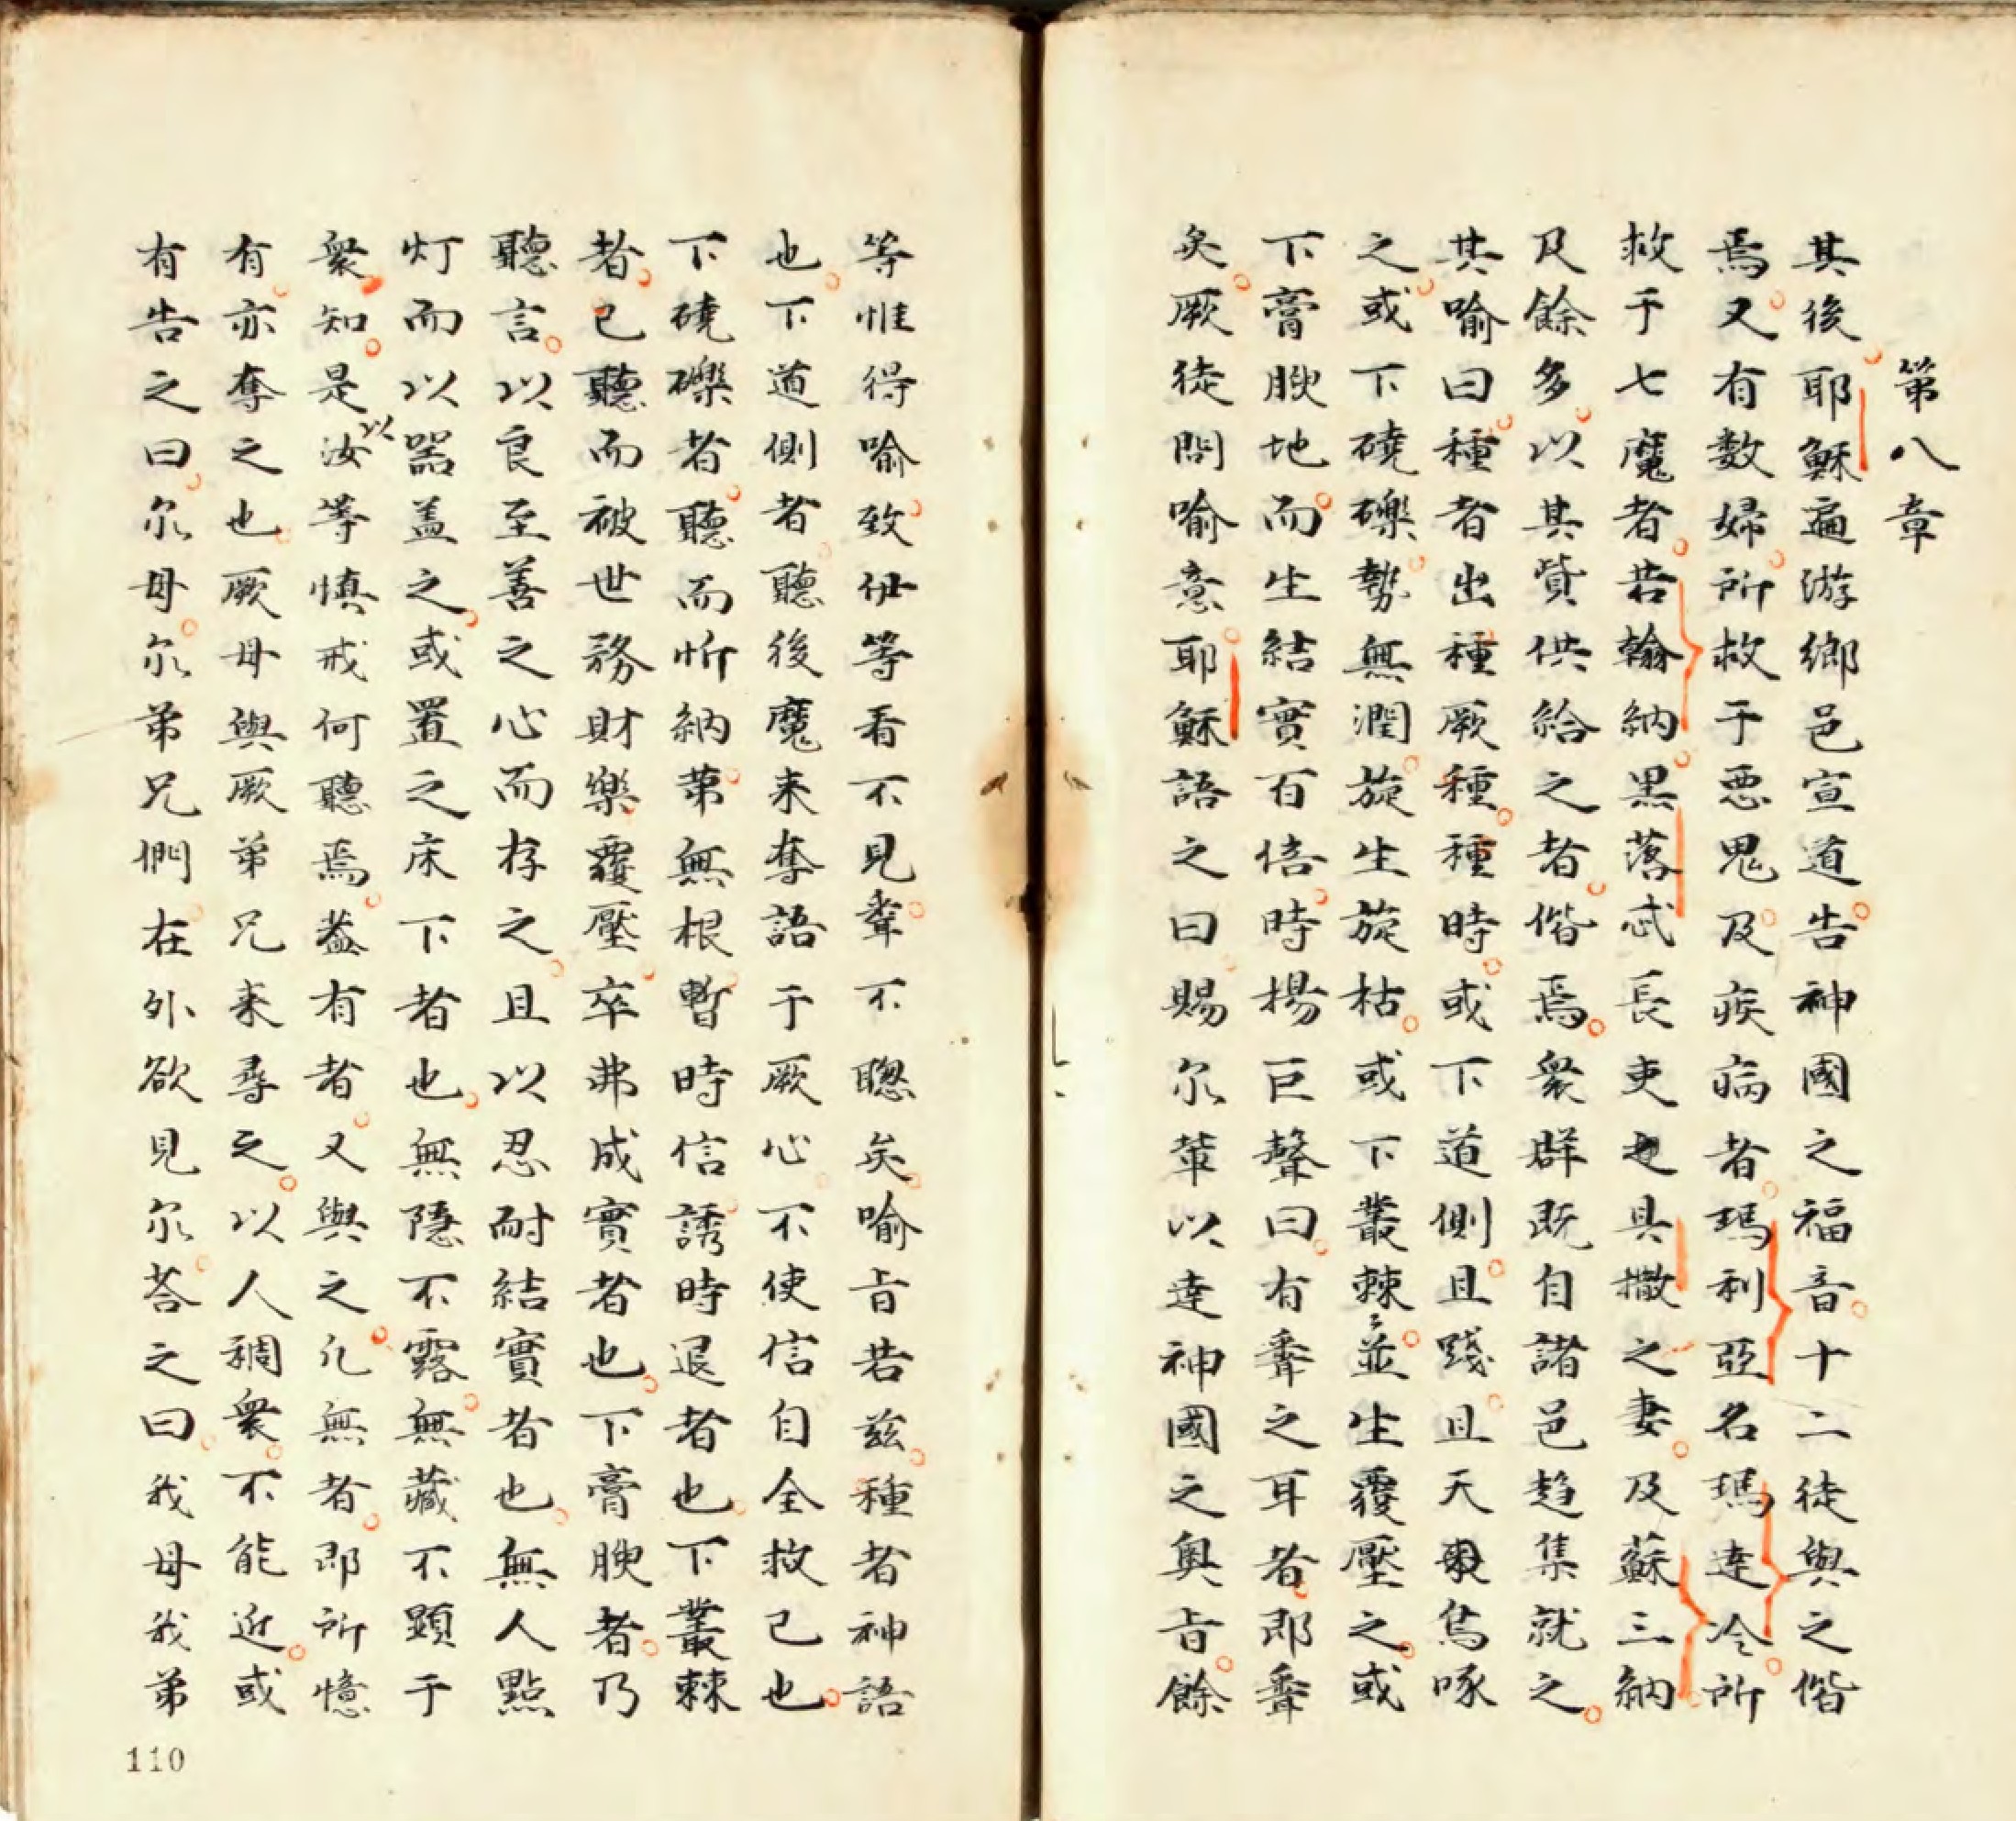 第八章
其後耶穌遍游鄉邑宣道告神國之福音十二徒與之偕
焉又有數婦所救于悪鬼及疾病者瑪利亞名瑪達冷所
救于七魔者若翰納黒落忒長吏具撒之妻及蘇三納
及餘多以其貲供給之者偕焉衆群既自諸邑趋集就之
其喻曰種者出種厥種種時或下道側且踐且天鳥啄
之或下磽礫勢無潤旋生旋枯或下叢棘〻並生覆壓之或
下膏腴地而生結實百倍時揚巨聲曰有聽之耳者即聽
矣厥徒問喻意耶穌語之曰賜尔輩以達神國之奥旨餘
等惟得喻致伊等看不見聽不聰矣喻旨若兹種者神語
也下道側者聽後魔来奪語于厥心不使信自全救己也
下磽礫者聽而忻納苐無根暫時信誘時退者也下叢棘
者已聽而被世務財樂覆壓卒弗成實者也下膏腴者乃
聽言以良至善之心而存之且以忍耐結實者也無人點
灯而以噐盖之或置之床下者也無隱不露無藏不顕于
衆知是以汝等慎戒何聽焉葢有者又與之凢無者即所憶
有亦奪之也厥母與厥弟兄来尋之以人稠衆不能近或
有告之曰尔母尔弟兄們在外欲見尔荅之曰我母我弟
110